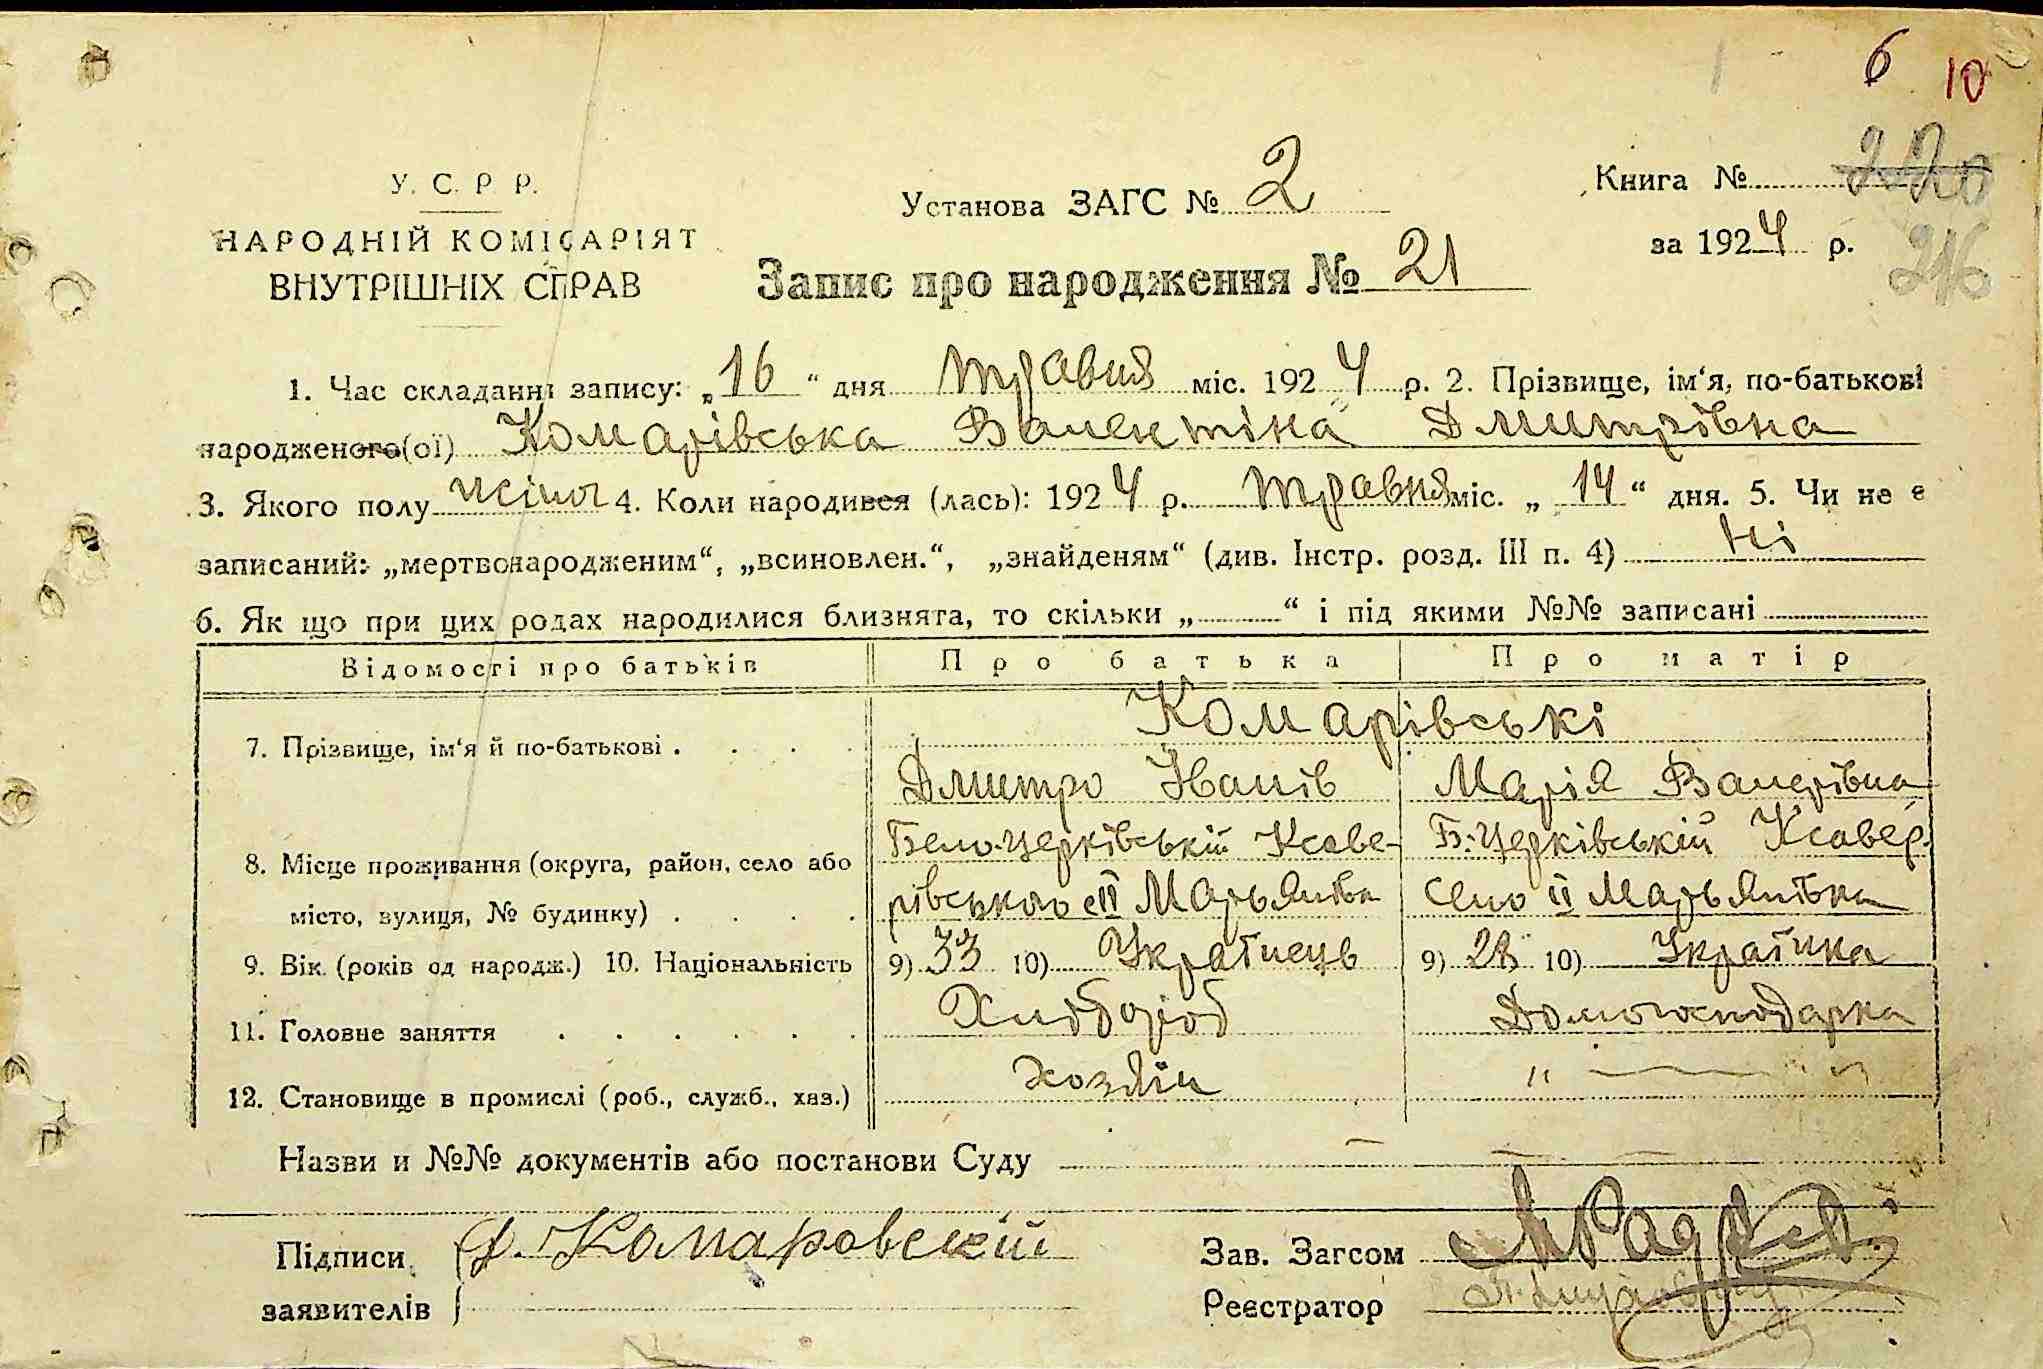 6 10
У. С. Р. Р.
НАРОДНІЙ КОМІСАРІЯТ
ВНУТРІШНІХ СПРАВ
Установа ЗАГС № 2
Книга № 220
за 1924 р.
216
Запис про народження № 21
1. Час складання запису: „16“ дня травня міс. 1924 р. 2. Прізвище, ім‘я, по-батькові
народженого(ої) Комарівська Валентіна Дмитрівна
3. Якого полу жіноч 4. Коли народився (лась): 1924 р. травня міс. „14“ дня. 5. Чи не є
записаний: „мертвонародженим“, „всиновлен.“, „знайденям“ (див. Інстр. розд. III п. 4) Ні
6. Як що при цих родах народилися близнята, то скільки „ “ і під якими №№ записані
Відомості про батьків Про батька Про матір
Комарівські
7. Прізвище, ім‘я й по-батькові . . . .
Дмитро Іванів Марія Валерівна
Бело-Церківській Ксаве- Б-Церківській Ксавер.
8. Місце проживання (округа, район, село або
рівського с II Марьянівка Село II Марьянівка
місто, вулиця, № будинку) . . . .
9. Вік (років од народж.) 10. Національність 9) 33 10) Українець 9) 28 10) Українка
11. Головне заняття . . . . . . Хлібороб Домогосподарка
12. Становище в промислі (роб., служб., хаз.) хозяїн " — "
Назви и №№ документів або постанови Суду —
Підписи Д. Комаровскій Зав. Загсом
заявителів Реєстратор